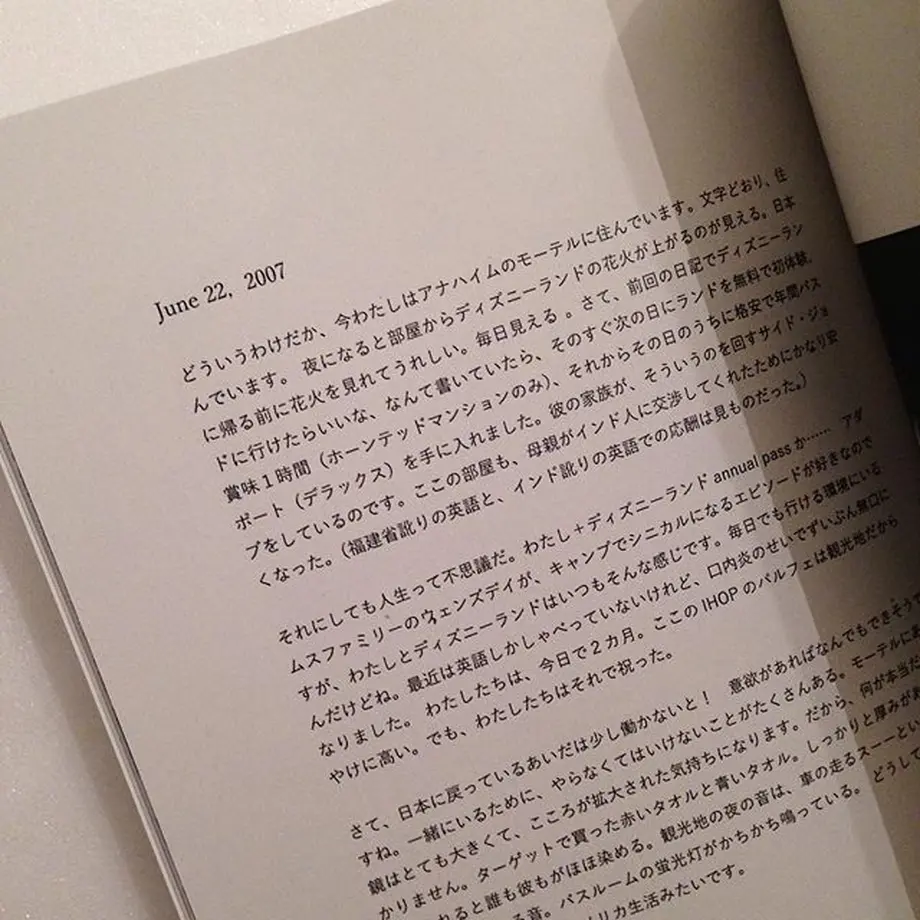 June 22, 2007
どういうわけだか、今わたしはアナハイムのモーテルに住んでいます。文字どおり、住
んでいます。 夜になると部屋からディズニーランドの花火が上がるのが見える。日本
に帰る前に花火を見れてうれしい。毎日見える 。さて、前回の日記でディズニーラン
ドに行けたらいいな、なんて書いていたら、そのすぐ次の日にランドを無料で初体験、
賞味1時間（ホーンテッドマンションのみ）、それからその日のうちに格安で年間パス
ポート（デラックス）を手に入れました。彼の家族が、そういうのを回すサイド・ジョ
ブをしているのです。ここの部屋も、母親がインド人に交渉してくれたためにかなり安
くなった。（福建省訛りの英語と、インド訛りの英語での応酬は見ものだった。）
それにしても人生って不思議だ。わたし＋ディズニーランド annual pass か…… アダ
ムスファミリーのウェンズデイが、キャンプでシニカルになるエピソードが好きなので
すが、わたしとディズニーランドはいつもそんな感じです。毎日でも行ける環境にいる
んだけどね。最近は英語しかしゃべっていないけれど、口内炎のせいでずいぶん無口に
なりました。 わたしたちは、今日で2カ月。ここの IHOP のパルフェは観光地だから
やけに高い。でも、わたしたちはそれで祝った。
さて、日本に戻っているあいだは少し働かないと！ 意欲があればなんでもできそうで
すね。一緒にいるために、やらなくてはいけないことがたくさんある。モーテルにある
鏡はとても大きくて、こころが拡大された気持ちになります。だから、何が本当だ
かりません。ターゲットで買った赤いタオルと青いタオル。しっかりと厚みがあ
れると誰も彼もがほほ染める。観光地の夜の音は、車の走るスーーとい
る音。バスルームの蛍光灯がかちかち鳴っている。 どうして
メリカ生活みたいです。